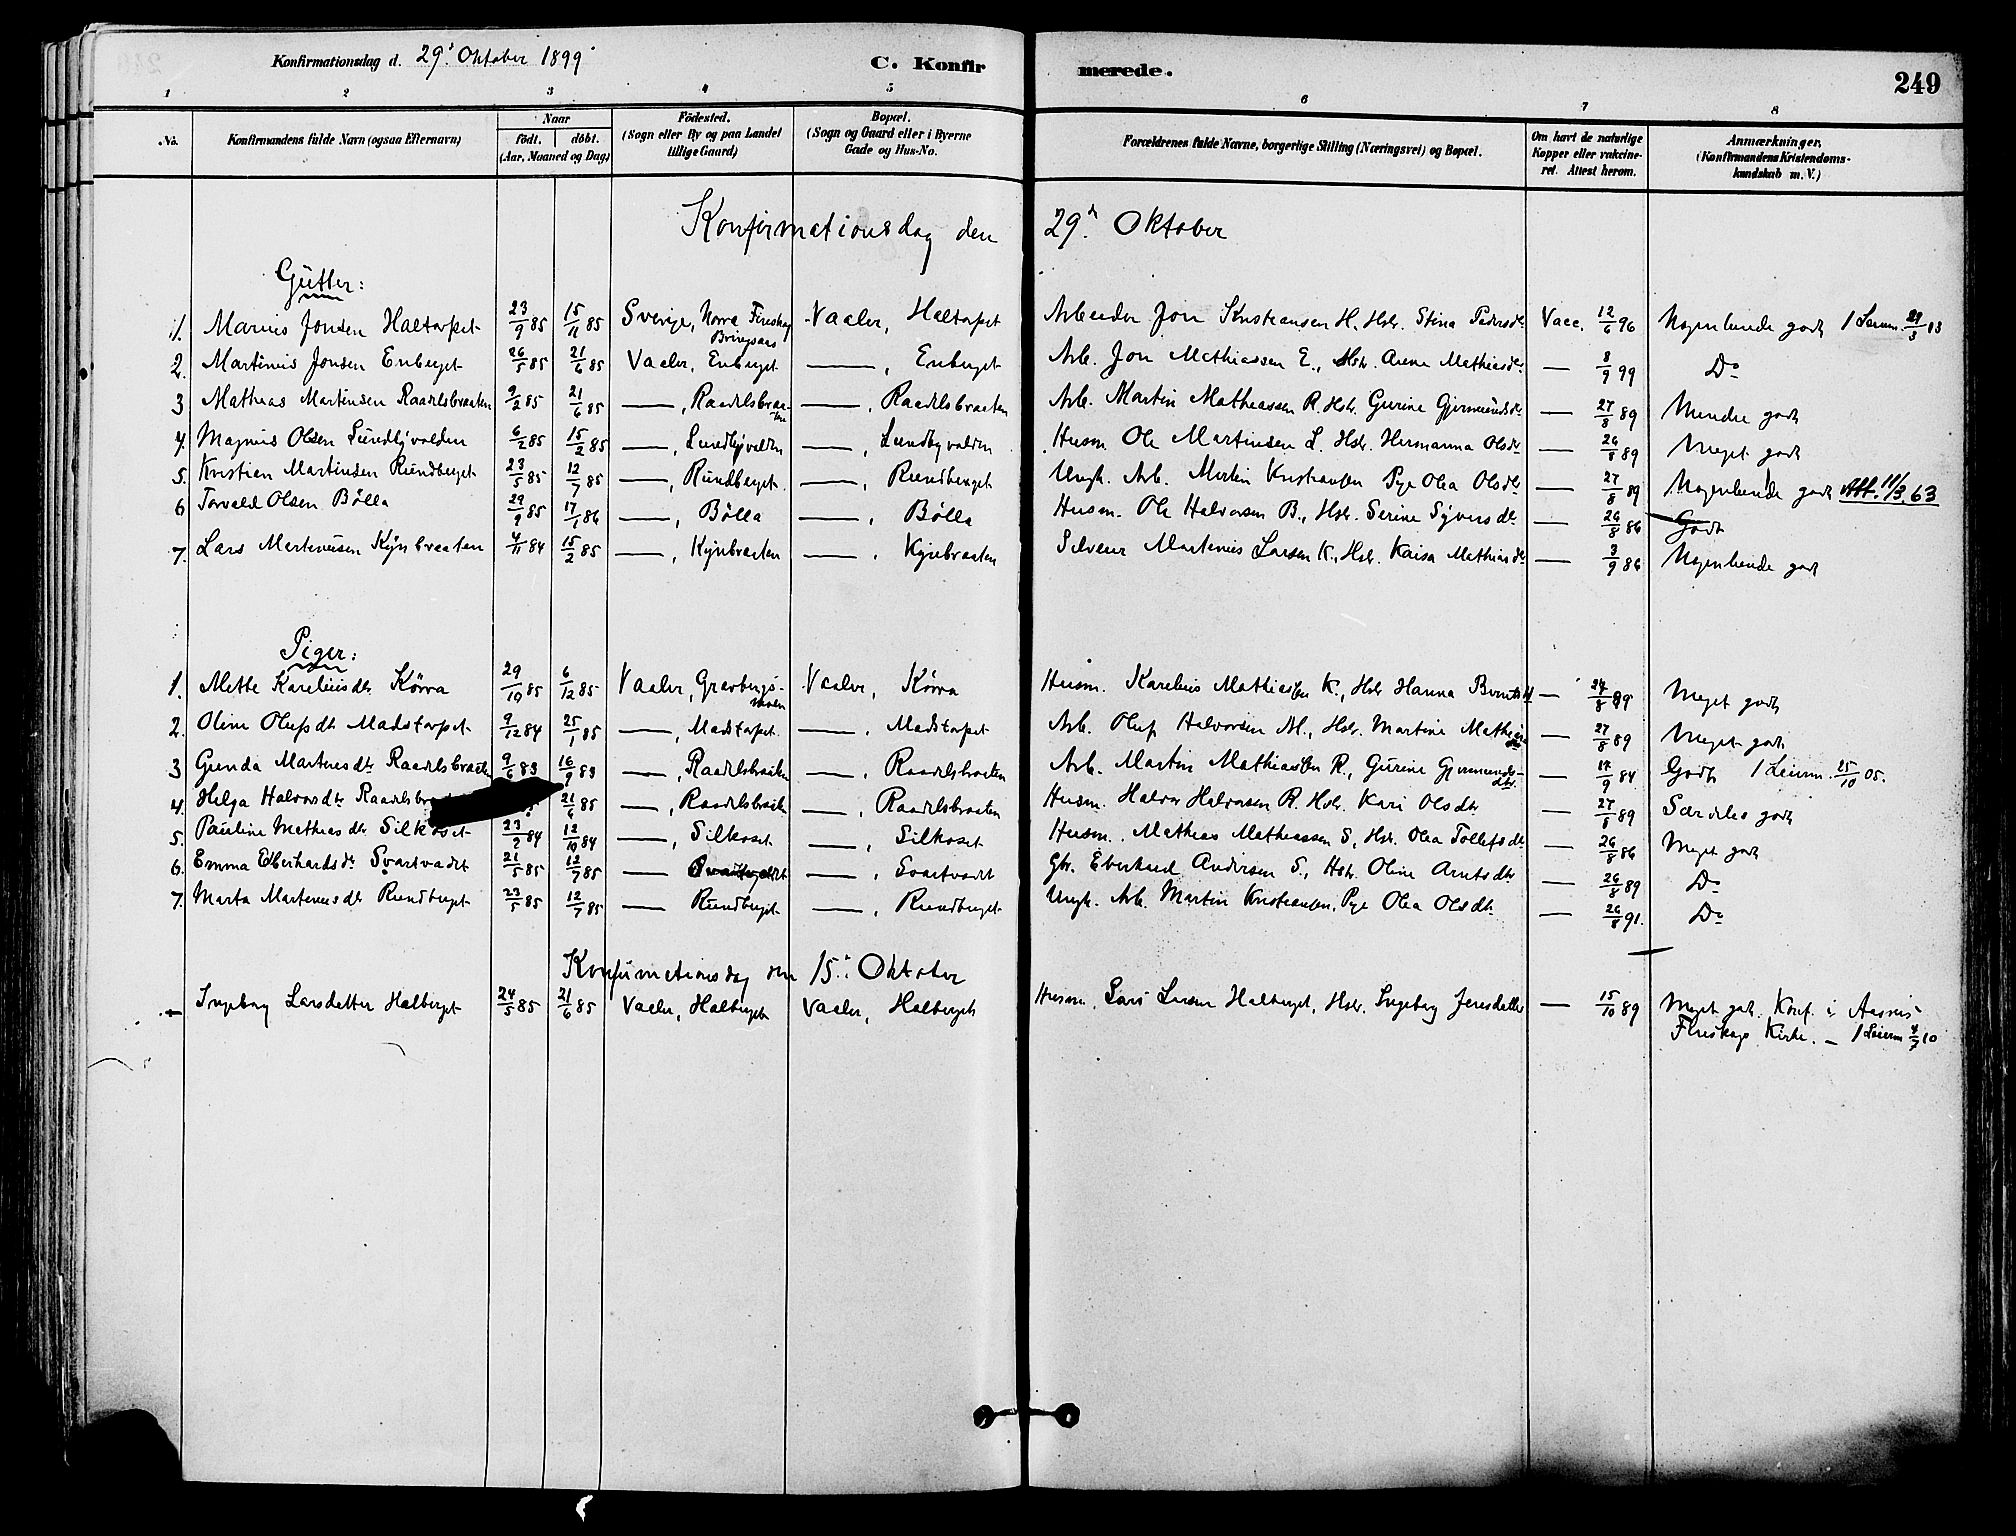 Konfirmationsdag d. 29' Oktober 1899. C. Konfirmerede. 249
1 2 3 4 5 6 7 8
No. Konfirmandens fulde Navn (ogsaa Efternavn) Naar födt. döbt. (Aar, Maaned og Dag) Födested. (Sogn eller By og paa Landet tillige Gaard) Bopæl. (Sogn og Gaard eller i Byerne Gade og Hus-No. Forældrenes fulde Navne, borgerlige Stilling (Næringsvei) og Bopæl. Om havt de naturlige Kopper eller vakcineret. Attest herom. Anmærkninger. (Konfirmandens Kristendomskundskab m. V.)
Konfirmationsdag den 29' Oktober
Gutter:
1. Marius Jonsen Haltorpet 23/9 85 15/11 85 Sverige, Norra Finskog Vaaler, Haltorpet Arbeider Jon Kristiansen H. Hstr. Stina Pedersdr Vacc. 12/6 96 Nogenlunde godt
2. Martinius Jonsen Enberget 26/5 85 21/6 85 Vaaler, Enberget —, Enberget Arb. Jon Mathiassen E., Hstr. Anne Mathiasdr — 8/9 99 Do
3 Mathias Martinsen Raadelsbraaten 9/2 85 21/6 85 —, Raadelsbraaten —, Raadelsbraaten Arb. Martin Mathiassen R. Hstr. Gurine Gjermundsdr — 27/8 89 Mindre godt
4. Magnus Olsen Lundbyvolden 6/2 85 15/2 85 —, Lundbyvolden —, Lundbyvolden Husm Ole Martinsen L. Hstr. Hermanna Olsdr — 26/8 89 Meget godt
5. Kristian Martinsen Rundberget 23/5 85 12/7 85 —, Rundberget —, Rundberget Ungk. Arb. Martin Kristiansen Pige Olea Olsdr — 27/8 89 Nogenlunde godt Att. 11/3 63
6 Torvald Olsen Bölla 29/9 85 17/1 86 —, Bölla —, Bölla Husm. Ole Halvorsen B., Hstr. Serine Syversdr — 26/8 86 Godt
7. Lars Martinusen Kynbraaten 4/11 84 15/2 85 —, Kynbraaten —, Kynbraaten Martinius Larsen K., Hstr. Kaisa Mathiasdr — 3/9 86 Nogenlunde godt
Piger:
1. Mette Kareliusdr. Körra 29/10 85 6/12 85 Vaaler, Gravbergs- Vaaler, Körra Husm. Karelius Mathiassen K., Hstr Hanna — 27/8 89 Meget godt
2. Oline Olufsdr Madstorpet 9/12 84 25/1 85 —, Madstorpet —, Madstorpet Arb. Oluf Halvorsen M., Hstr. Martine Mathiasdr — 27/8 89 Meget godt
3 Gunda Martinsdr Raadelsbraaten 9/6 83 16/9 83 —, Raadelsbraaten —, Raadelsbraaten Arb. Martin Mathiassen R., Gurine Gjermundsdtr. — 17/9 84 Godt 25/10 05.
4. Helga Halvorsdr. 21/6 85 —, Raadelsbraaten —, Raadelsbraaten Husm. Halvor Halvorsen R. Hstr. Kari Olsdtr — 27/8 89 Særdeles godt
5. Pauline Mathiasdr Silkoset 23/7 84 12/10 84 —, Silkoset —, Silkoset Husm. Mathias Mathiassen S, Hstr. Olea Tollefsdr — 26/8 86 Meget godt
6. Emma Eberhardsdr Svartvadet 21/5 85 12/7 85 — Svartvadet —, Svartvadet Eberhard Andersen S., Hstr. Oline Arntsdtr — 26/8 89 Do
7. Marta Martinusdr Rundberget 23/5 85 12/7 85 — Rundberget —, Rundberget Ungk. Arb. Martin Kristiansen, Pige Olea Olsdtr. — 26/8 91. Do
Konfirmationsdag den 15' Oktober
Ingeborg Larsdatter Halberget 24/5 85 21/6 85 Vaaler, Halberget Vaaler, Halberget Husm. Lars Larsen Halberget, Hstr. Ingeborg Jensdatter — 15/10 89 Meget godt. Konf. i Aasnes
Finskogs Kirke.